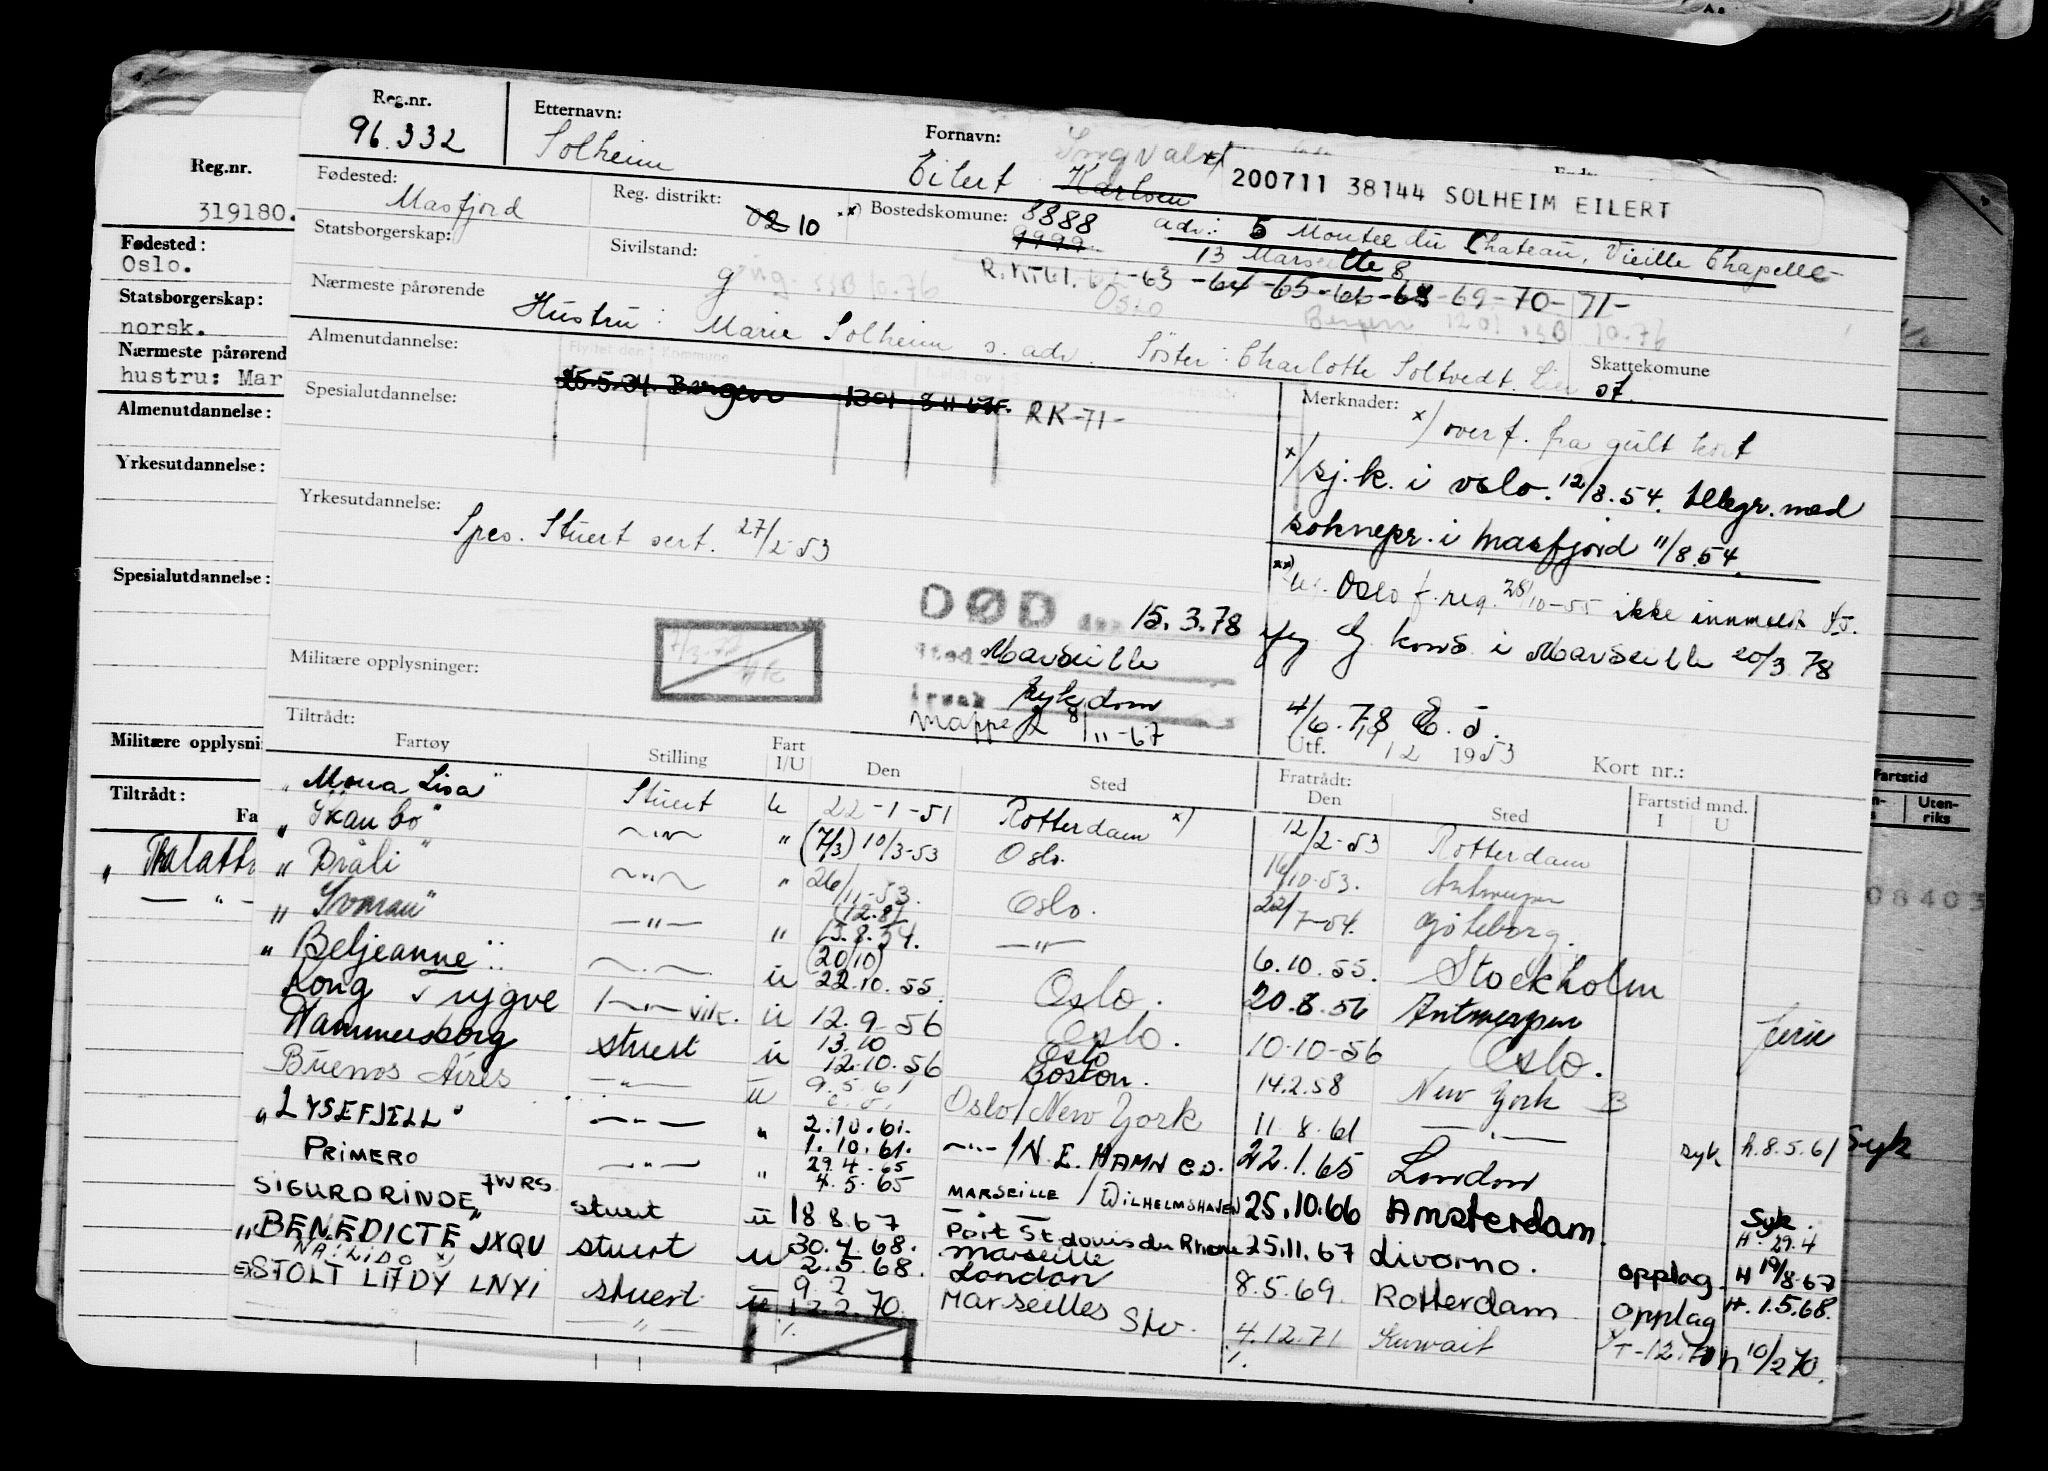 Reg.nr.
96.332
Etternavn:
Solheim
Fornavn:
Eilert Karlsen
200711 38144 SOLHEIM EILERT
Fødested:
Masfjord
Reg. distrikt:
02 10
Bostedskomune:
8888
9999
adr.: 5 Montee du Chateau, Vieille Chapelle
13 Marseille 8
Statsborgerskap:
Sivilstand:
g
R.K-61. 62-63-64-65-66-68-69-70-71-
Oslo
Bergen 1201 10.76
Nærmeste pårørende
Hustru: Marie Solheim s. adr. Søster: Charlotte Soltvedt. Lien
Skattekomune
Almenutdannelse:
Flyttet den Kommune
25.5.34. Bergen 1301
RK-71-
Spesialutdannelse:
Merknader:
x) overf. fra gult kort
x) sj.k. i Oslo. 12/8.54. tlegr. med
soknepr. i Masfjord 11/8.54.
xx) Oslo f.reg. 28/10-55 ikke innmeldt
Yrkesutdannelse:
Spes. Stuert sert. 27/2-53
DØD den 15.3.78
sted Marseille
årsak sykdom
Mappe 2 8/11-67
kons. i Marseille 20/3 78
4/6.78
Militære opplysninger:
Utf. 12 1953
Kort nr.:
Tiltrådt:
Fartøy Stilling Fart I/U Den Sted
Fratrådt: Den Sted Fartstid mnd. I U
"Mona Lisa" Stuert u 22-1-51 Rotterdam x) 12/2-53 Rotterdam
"Skaubo" —"— " (7/3) 10/3-53 Oslo. 16/10-53. Antwerpen
"Bråli" —"— " 26/11-53. Oslo. 22/7-54. Göteborg.
"Svaran" —"— " (12.8) 13.8.54. —"— 6.10.55. Stockholm
"Beljeanne" —"— u (20/10) 22.10.55. Oslo. 20.8.56 Antwerpen ferie
Kong Trygve —"— vik. u 12.9.56 Oslo. 10-10-56 Oslo.
Hammersborg stuert u 13.10 12.10.56 Oslo Boston. 14.2.58 New York
Buenos Aires —"— u 9.5.61 Oslo/New York 11.8.61 —"— syk h.8.5.61 Syk
"LYSEFJELL" —"— " 2.10.61. 1.10.61. —"—/N.E. HAMN CO. 22.1.65 London
PRIMERO —"— " 29.4.65 4.5.65 MARSEILLE / WILHELMSHAVEN 25.10.66 Amsterdam. Syk. H. 29.4
SIGURD RINDE, JWRS stuert u 18.8.67 Port St Louis du Rhone 25.11.67 Livorno. opplag H 19/8-67
"BENEDICTE" JXQU stuert u 30.4.68. 2.5.68. Marseille London 8.5.69. Rotterdam opplag H. 1.5.68.
STOLT LIFDY LNYI stuert u 9.2 12.2.70. Marseilles 4.12.71 Kuwait h 10/2 70.
Reg.nr.
319180.
Fødested:
Oslo.
Statsborgerskap:
norsk.
Nærmeste pårørend
hustru: Mar
Almenutdannelse:
Yrkesutdannelse:
Spesialutdannelse:
Militære opplysni
Tiltrådt:
Fa
"Thalatt
— " —
Fartstid
Uten-
riks
08403